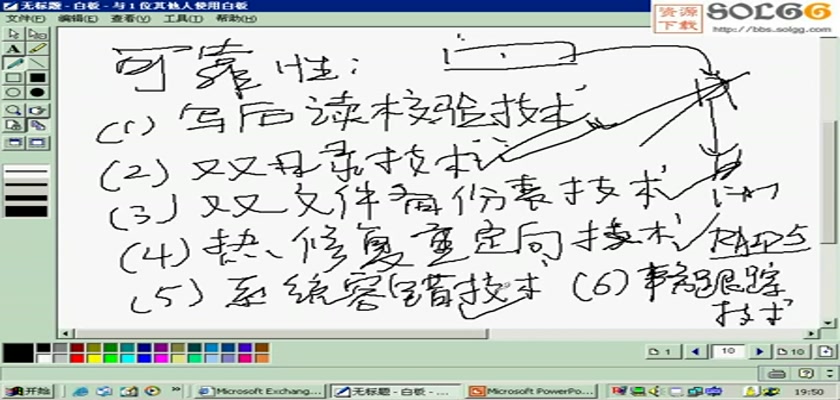 无标题 - 白板 - 与 1 位其他人使用白板
文件(F) 编辑(E) 查看(V) 工具(T) 帮助(H)
资源下载 SOLGG
http://bbs.solgg.com
可靠性:
(1) 写后读校验技术
(2) 双目录技术
(3) 双文件分配表技术
(4) 热修复重定向技术 RAID5
(5) 系统容错技术 (6) 事务跟踪
技术
1 10 10
开始 Microsoft Exchang... 无标题 - 白板 - ... Microsoft PowerPo... 19:50